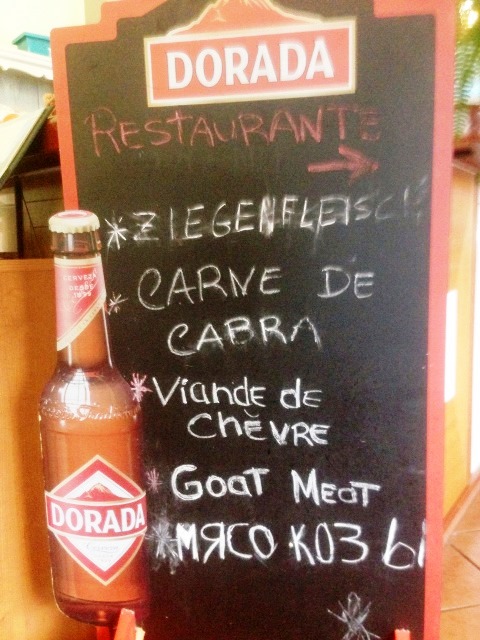 DORADA
RESTAURANTE
→
*ZIEGENFLEISCH
* CARNE DE
CABRA
* Viande de
Chĕvre
* Goat Meat
*МЯСО КОЗЫ
CERVEZA
DESDE
1939
DORADA